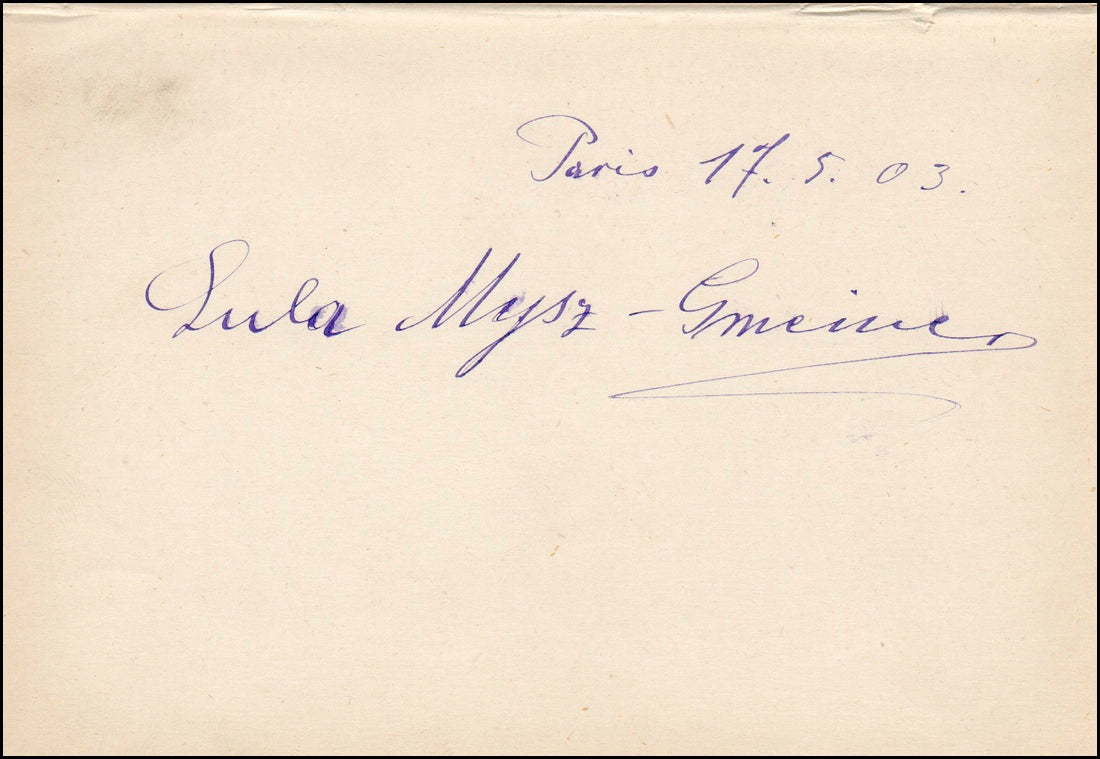 Paris 17. 5. 03.
Lula Mysz-Gmeiner